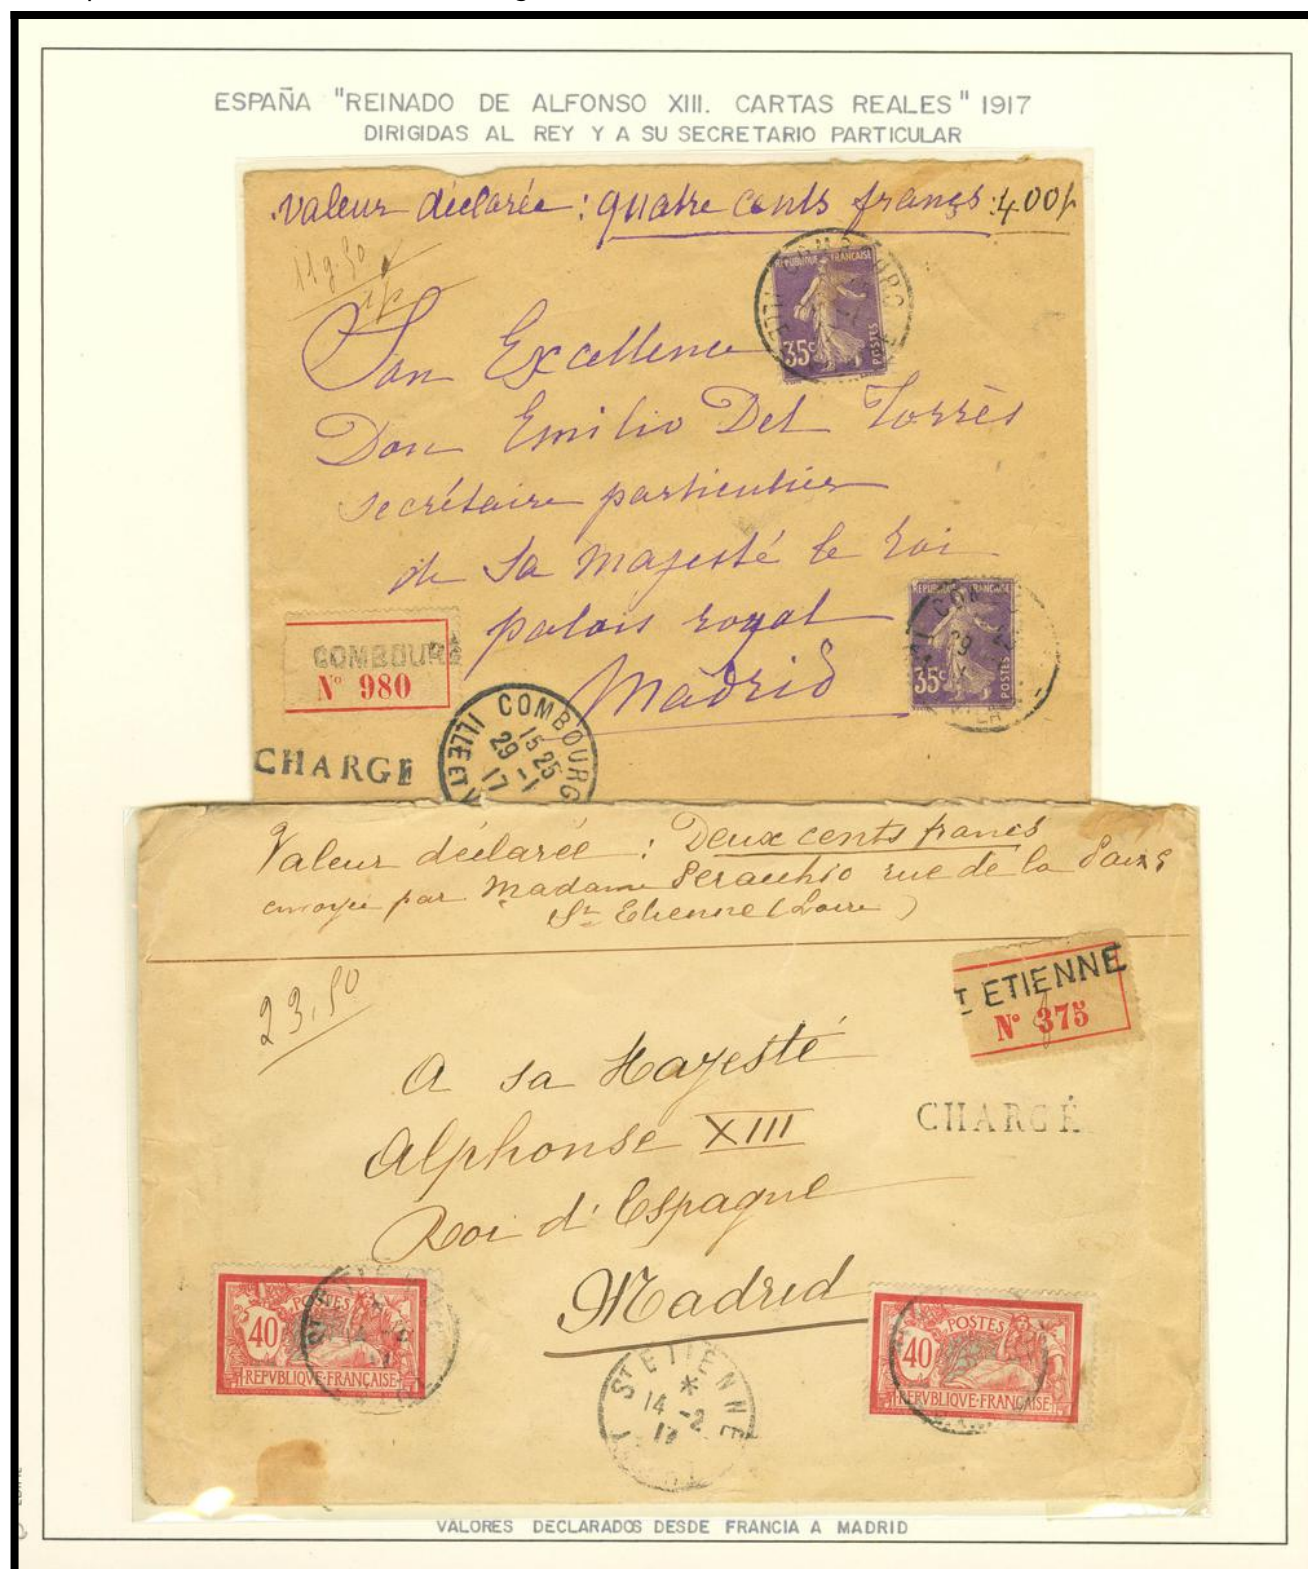 ESPAÑA "REINADO DE ALFONSO XIII. CARTAS REALES" 1917
DIRIGIDAS AL REY Y A SU SECRETARIO PARTICULAR
Valeur déclarée : quatre cents francs : 400f
11g.50
REPUBLIQUE FRANÇAISE
35c POSTES
Son Excellence
Don Emilio Del Torrès
secrétaire particulier
de Sa Majesté le roi
palais royal
Madrid
REPUBLIQUE FRANÇAISE
35c POSTES
COMBOURG
Nº 980
CHARGÉ
COMBOURG
15 25
29 -1
17
ILLE ET
Valeur déclarée : Deux cents francs
envoyée par Madame Peracchio rue de la Paix 9
St Etienne (Loire)
T ETIENNE
Nº 375
23,50
A sa Majesté
CHARGÉ
Alphonse XIII
Roi d'Espagne
Madrid
POSTES
40
REPVBLIQVE FRANÇAISE
POSTES
40
REPVBLIQVE FRANÇAISE
ST ETIENNE
*
14 -2
17
VALORES DECLARADOS DESDE FRANCIA A MADRID